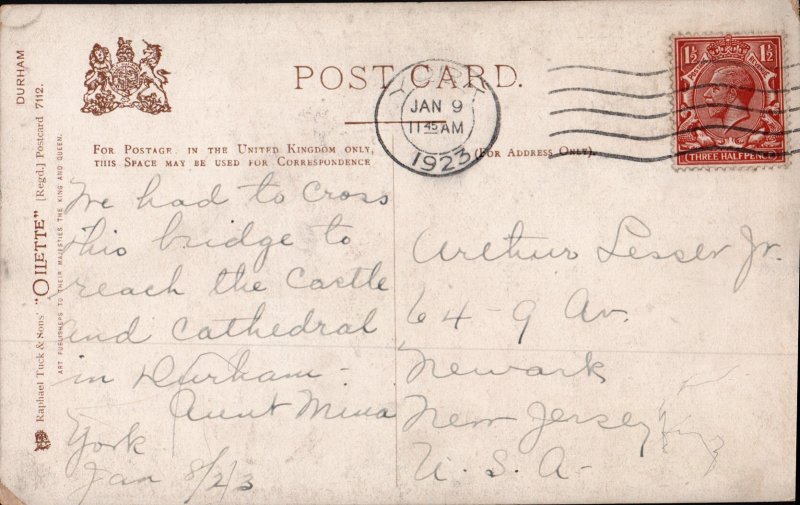 DURHAM
Raphael Tuck & Sons' "OILETTE" [Regd.] Postcard 7112.
ART PUBLISHERS TO THEIR MAJESTIES THE KING AND QUEEN.
POST CARD.
FOR POSTAGE IN THE UNITED KINGDOM ONLY,
THIS SPACE MAY BE USED FOR CORRESPONDENCE
(FOR ADDRESS ONLY).
YORK
JAN 9
11 45 AM
1923
1½ 1½
POSTAGE
(THREE HALFPENCE)
We had to cross
this bridge to
reach the Castle
and Cathedral
in Durham -
Aunt Mina
York
Jan 8/23
Arthur Lesser Jr.
64-9 Av.
Newark
New Jersey
U.S.A-